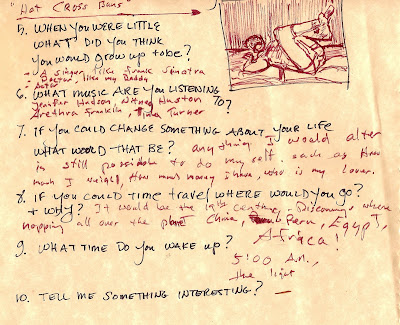 "Hot Cross Buns
5. WHEN YOU WERE LITTLE
WHAT DID YOU THINK
YOU WOULD GROW UP TO BE?
- A singer like Frank Sinatra
- Doctor like my Daddy
- Actor
6. WHAT MUSIC ARE YOU LISTENING TO?
Jenifer Hudson, Witney Huston
Arethra Franklin, Tina Turner
7. IF YOU COULD CHANGE SOMETHING ABOUT YOUR LIFE
WHAT WOULD THAT BE? anything I would alter
is still possible to do my self. such as How
much I weight, How much money I have, who is my lover.
8. IF YOU COULD TIME TRAVEL WHERE WOULD YOU GO?
+ WHY? It would be the 19th century, Discovering, where
mapping all over the China, Peru, EGYPT,
Africa!
9. WHAT TIME DO YOU WAKE UP?
5:00 A.M.,
the light
10. TELL ME SOMETHING INTERESTING? —